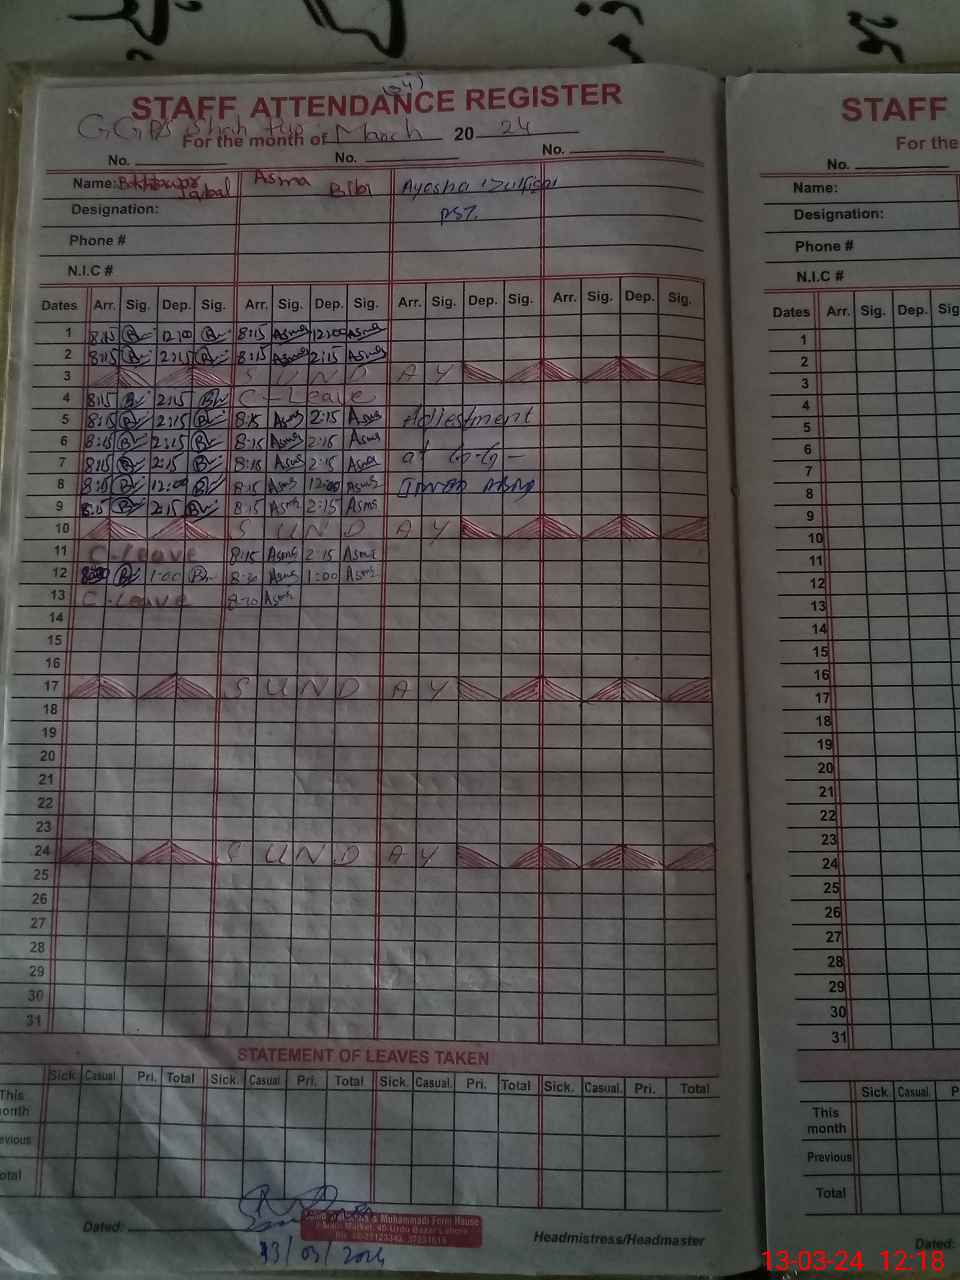 (04)
STAFF ATTENDANCE REGISTER
GGPS Shah Pur
For the month of March 2024
No. No. No.
Name: Iqbal Asma Bibi Ayesha Zulfiqar
Designation: PST.
Phone #
N.I.C #
Dates Arr. Sig. Dep. Sig. Arr. Sig. Dep. Sig. Arr. Sig. Dep. Sig. Arr. Sig. Dep. Sig.
1 8:15 12:00 8:15 Asma 12:00 Asma
2 8:15 2:15 8:15 Asma 2:15 Asma
3 SUNDAY
4 8:15 2:15 C-Leave
5 8:15 2:15 8:15 Asma 2:15 Asma Adjestment
6 8:15 2:15 8:15 Asma 2:15 Asma
7 8:15 2:15 8:15 Asma 2:15 Asma at G-G-
8 8:15 12:00 8:15 Asma 12:00 Asma
9 8:15 2:15 8:15 Asma 2:15 Asma
10 SUNDAY
11 C-leave 8:15 Asma 2:15 Asma
12 1:00 8:20 Asma 1:00 Asma
13 C-leave 8:20 Asma
14
15
16
17 SUNDAY
18
19
20
21
22
23
24 SUNDAY
25
26
27
28
29
30
31
STATEMENT OF LEAVES TAKEN
Sick. Casual Pri. Total Sick. Casual Pri. Total Sick. Casual. Pri. Total Sick. Casual. Pri. Total
This
onth
evious
otal
& Muhammadi Form House
Market, 40-Urdu Bazar Lahore
Dated: Headmistress/Headmaster
13/03/2024
STAFF
For the
No.
Name:
Designation:
Phone #
N.I.C #
Dates Arr. Sig. Dep. Sig
1
2
3
4
5
6
7
8
9
10
11
12
13
14
15
16
17
18
19
20
21
22
23
24
25
26
27
28
29
30
31
Sick. Casual. P
This
month
Previous
Total
Dated:
13-03-24 12:18